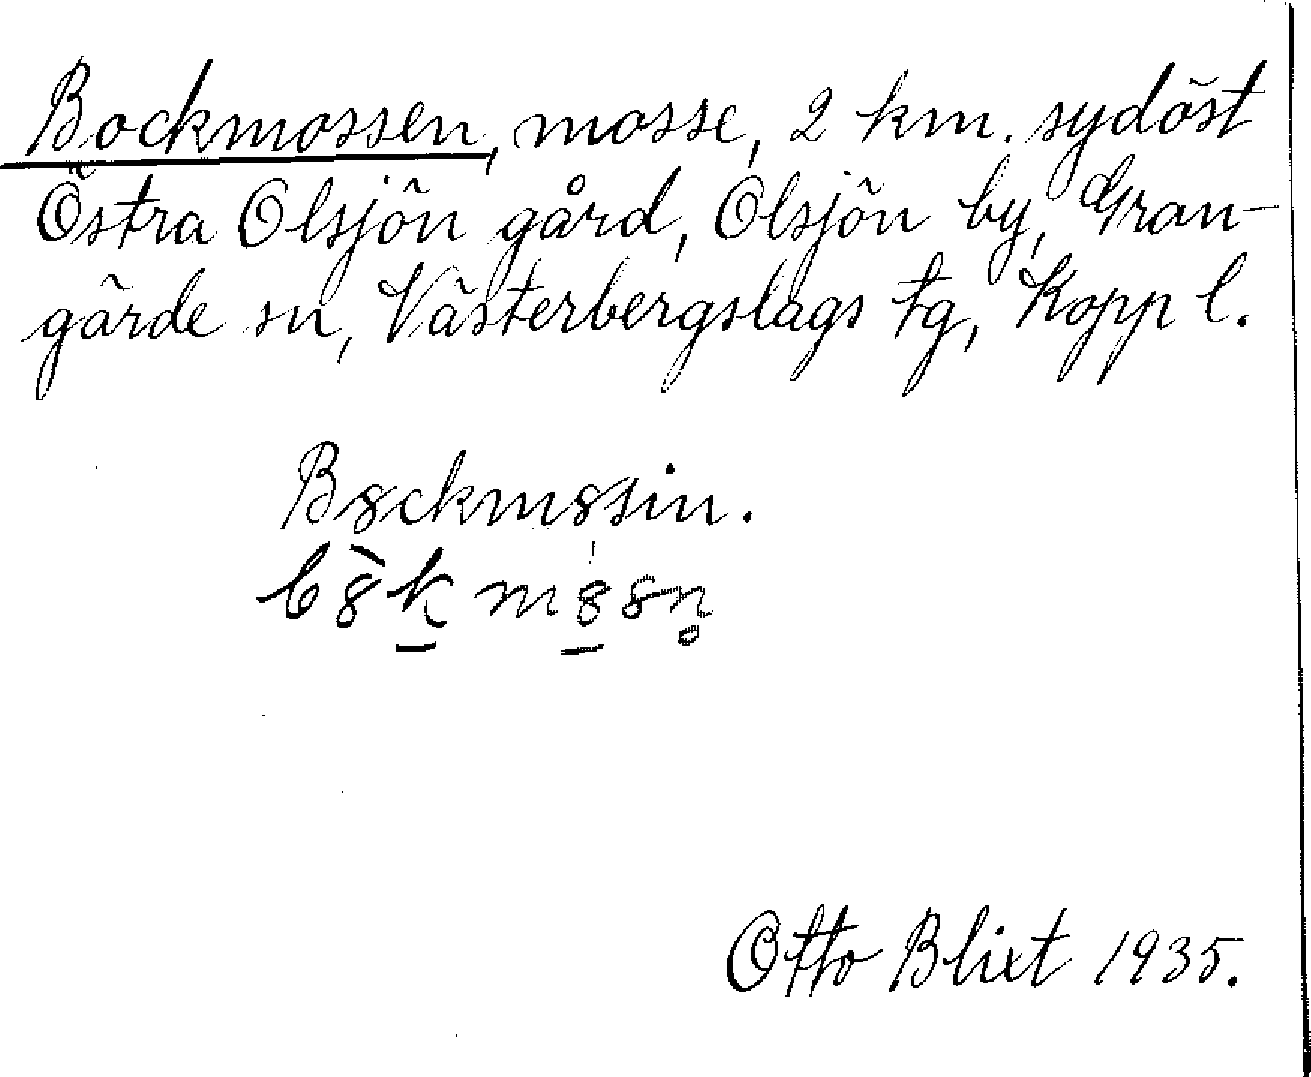 Bockmossen, mosse, 2 km. sydöst
Östra Olsjön gård, Olsjön by, Gran-
gärde sn, Västerbergslags tg, Kopp l.
B8ckm8ssin.
Otto Blixt 1935.